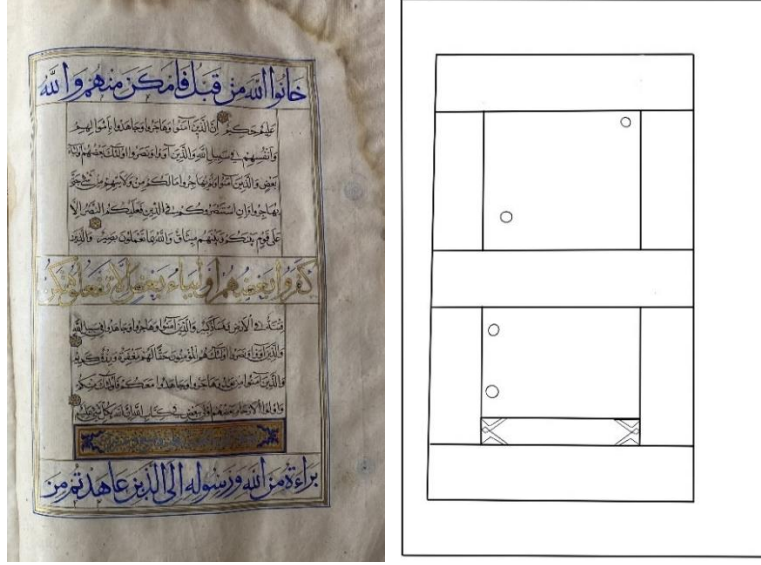 خانوا الله من قبل فامكن منهم والله
عليم حكيم ان الذين آمنوا وهاجروا وجاهدوا باموالهم
وانفسهم في سبيل الله والذين آووا ونصروا اولئك بعضهم اولياء
بعض والذين آمنوا ولم يهاجروا مالكم من ولايتهم من شيء حتى
يهاجروا وان استنصروكم في الدين فعليكم النصر الا
على قوم بينكم وبينهم ميثاق والله بما تعملون بصير والذين
كفروا بعضهم اولياء بعض الا تفعلوه تكن
فتنة في الارض وفساد كبير والذين آمنوا وهاجروا وجاهدوا في سبيل الله
والذين آووا ونصروا اولئك هم المؤمنون حقا لهم مغفرة ورزق كريم
والذين آمنوا من بعد وهاجروا وجاهدوا معكم فاولئك منكم
واولوا الارحام بعضهم اولى ببعض في كتاب الله ان الله بكل شيء عليم
براءة من الله ورسوله الى الذين عاهدتم من